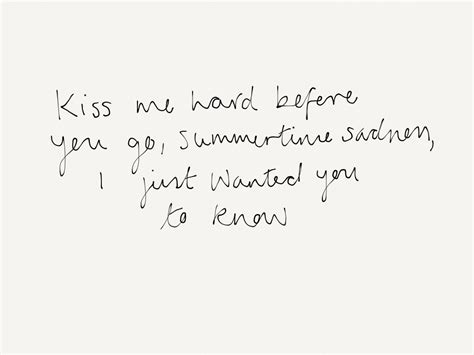 Kiss me hard before
you go, summertime sadness,
I just wanted you
to know